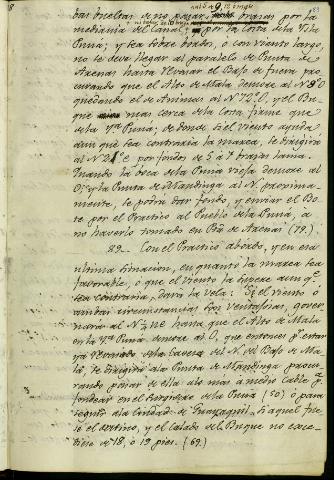 das bueltas de no pasar brazas por la
mediania del Canal; por la Costa de la Ysla
Puná; y sea sobre bordo, ó con viento largo,
no se debe llegar al paralelo de Punta de
Arenas hasta llevar el Baxo de fuera pro
curando que el Alto de Mala demore al N O
quedando el de Animas al N O, y el Bu
que mas cerca de la Costa firme que
de la Puná; de donde si el viento ayuda
aun que sea contraria la marea, se dirigirá
al N E por fondo de 5 á 7 brazas lama.
Quando la boca de la Puná vieja demore al
O; y la Punta de Mandinga al N. proxima-
mente, se podrá dar fondo, y enviar el Bo-
te por el Practico al Pueblo de la Puná, á
no haverlo tomado en Pta de Arenas (79.)
82.. Con el Practico abordo, y en esta
ultima situacion, en quanto la marea sea
favorable, ó que el viento la supere aun qe
sea contraria, dará la vela: Si el viento ó
ambas circunstancias son ventajosas, gover
nará al N NE hasta que el Alto de Mala
en la Puná demore al O, que entonces pr estar
ya la Cavera del N. del Baxo de Ma
la, se dirigirá á la Punta de Mandinga procu
rando pasar de ella á lo mas a medio Cable pa
fondear en el Surgidero de la Puná (50) ó para
seguir á la Ciudad de Guayaquil, si aquel fue
se el destino, y el Calado del Buque no exce-
diese de 18, ó 19 pies. (69.)